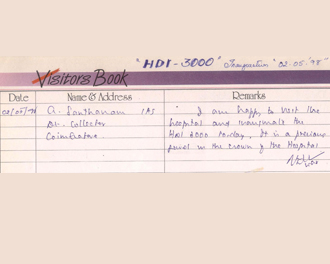 "HDI-3000" Inauguration "02-05-'98"
Visitors Book
Date Name & Address Remarks
02/05/98 A. Santhanam IAS "I am happy to visit the
Dt. Collector hospital and inaugurate the
Coimbatore. HDI 3000 today. It is a precious
jewel in the crown of the Hospital